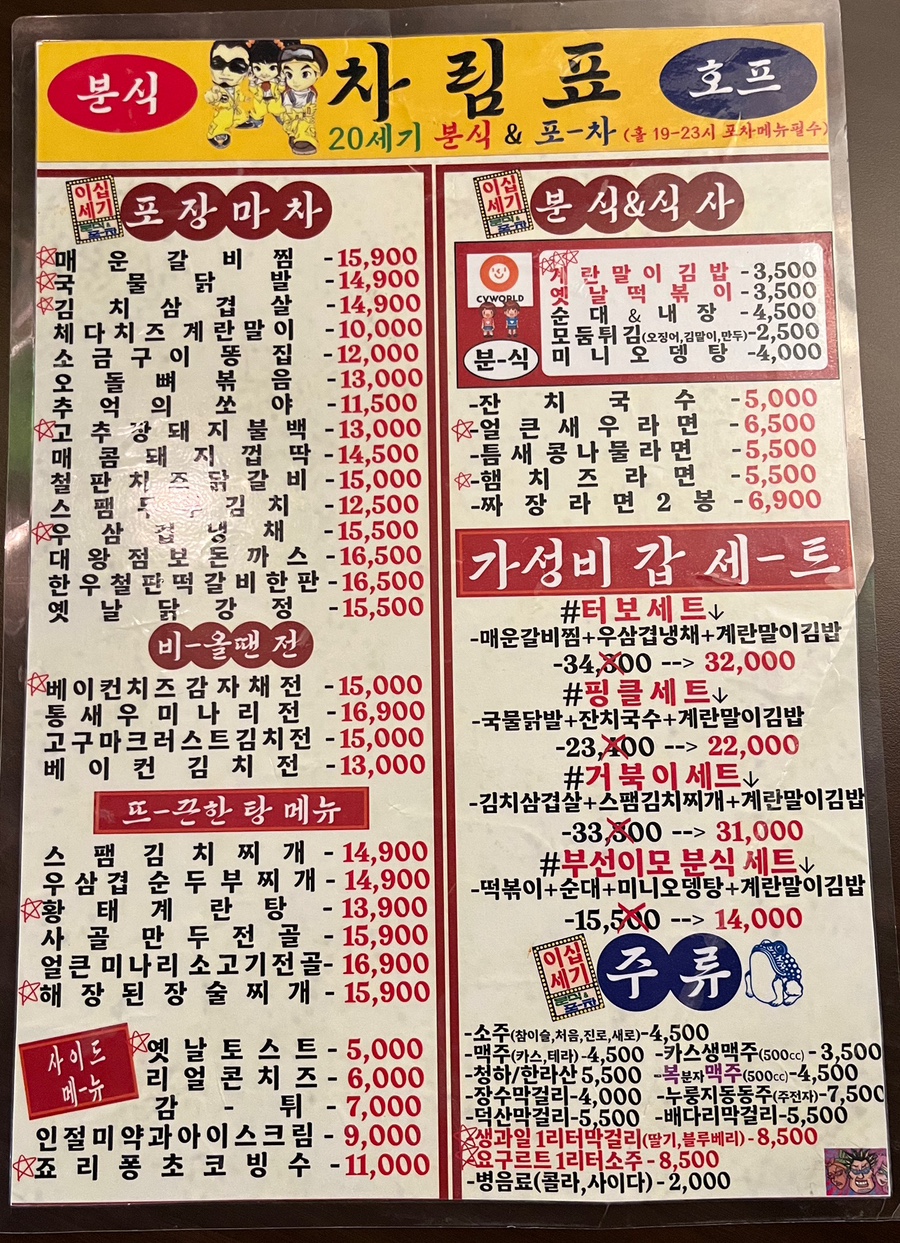 분식
차림표
호프
20세기 분식 & 포-차 (홀 19-23시 포차메뉴필수)
이십세기 분식&포-차
포장마차
매운갈비찜 -15,900
국물닭발 -14,900
김치삼겹살 -14,900
체다치즈계란말이 -10,000
소금구이똥집 -12,000
오돌뼈볶음 -13,000
추억의쏘야 -11,500
고추장돼지불백 -13,000
매콤돼지껍딱 -14,500
철판치즈닭갈비 -15,000
스팸두부김치 -12,500
우삼겹냉채 -15,500
대왕점보돈까스 -16,500
한우철판떡갈비한판 -16,500
옛날닭강정 -15,500
비-올땐 전
베이컨치즈감자채전 -15,000
통새우미나리전 -16,900
고구마크러스트김치전 -15,000
베이컨 김치전 -13,000
뜨-끈한 탕 메뉴
스팸김치찌개 -14,900
우삼겹 순두부찌개 -14,900
황태계란탕 -13,900
사골만두전골 -15,900
얼큰미나리 소고기전골- 16,900
해장된장술찌개 -15,900
사이드 메-뉴
옛날토스트 -5,000
리얼콘치즈 -6,000
감-튀 -7,000
인절미약과아이스크림 -9,000
죠리퐁초코빙수 -11,000
이십세기 분식&포-차
분식&식사
CYWORLD
분-식
계란말이김밥 -3,500
옛날떡볶이 -3,500
순대&내장 -4,500
모둠튀김(오징어,김말이,만두)-2,500
미니오뎅탕 -4,000
-잔치국수 -5,000
-얼큰새우라면 -6,500
-틈새콩나물라면 -5,500
-햄치즈라면 -5,500
-짜장라면2봉 -6,900
가성비 갑 세-트
#터보세트↓
-매운갈비찜+우삼겹냉채+계란말이김밥
-34,300 --> 32,000
#핑클세트↓
-국물닭발+잔치국수+계란말이김밥
-23,400 --> 22,000
#거북이세트↓
-김치삼겹살+스팸김치찌개+계란말이김밥
-33,300 --> 31,000
#부선이모 분식 세트↓
-떡볶이+순대+미니오뎅탕+계란말이김밥
-15,500 --> 14,000
이십세기 분식&포-차
주류
-소주(참이슬,처음,진로,새로)-4,500
-맥주(카스,테라) -4,500 -카스생맥주(500cc) - 3,500
-청하/한라산 5,500 -복분자맥주(500cc)-4,500
-장수막걸리-4,000 -누룽지동동주(주전자)-7,500
-덕산막걸리-5,500 -배다리막걸리-5,500
생과일 1리터막걸리(딸기,블루베리) - 8,500
요구르트 1리터소주 - 8,500
-병음료(콜라,사이다) - 2,000